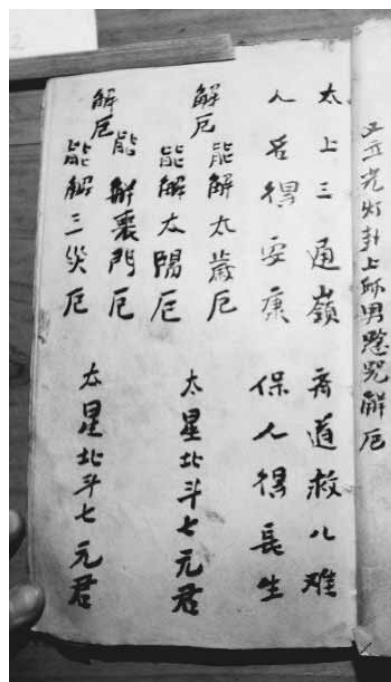 立光灯封上師男咒解厄
太上三通嶺 斉道救八难
人各得安康 保人得長生
解厄
能解太歲厄
能解太陽厄
太星北斗七元君
解厄
能解喪門厄
能解三災厄
太星北斗七元君